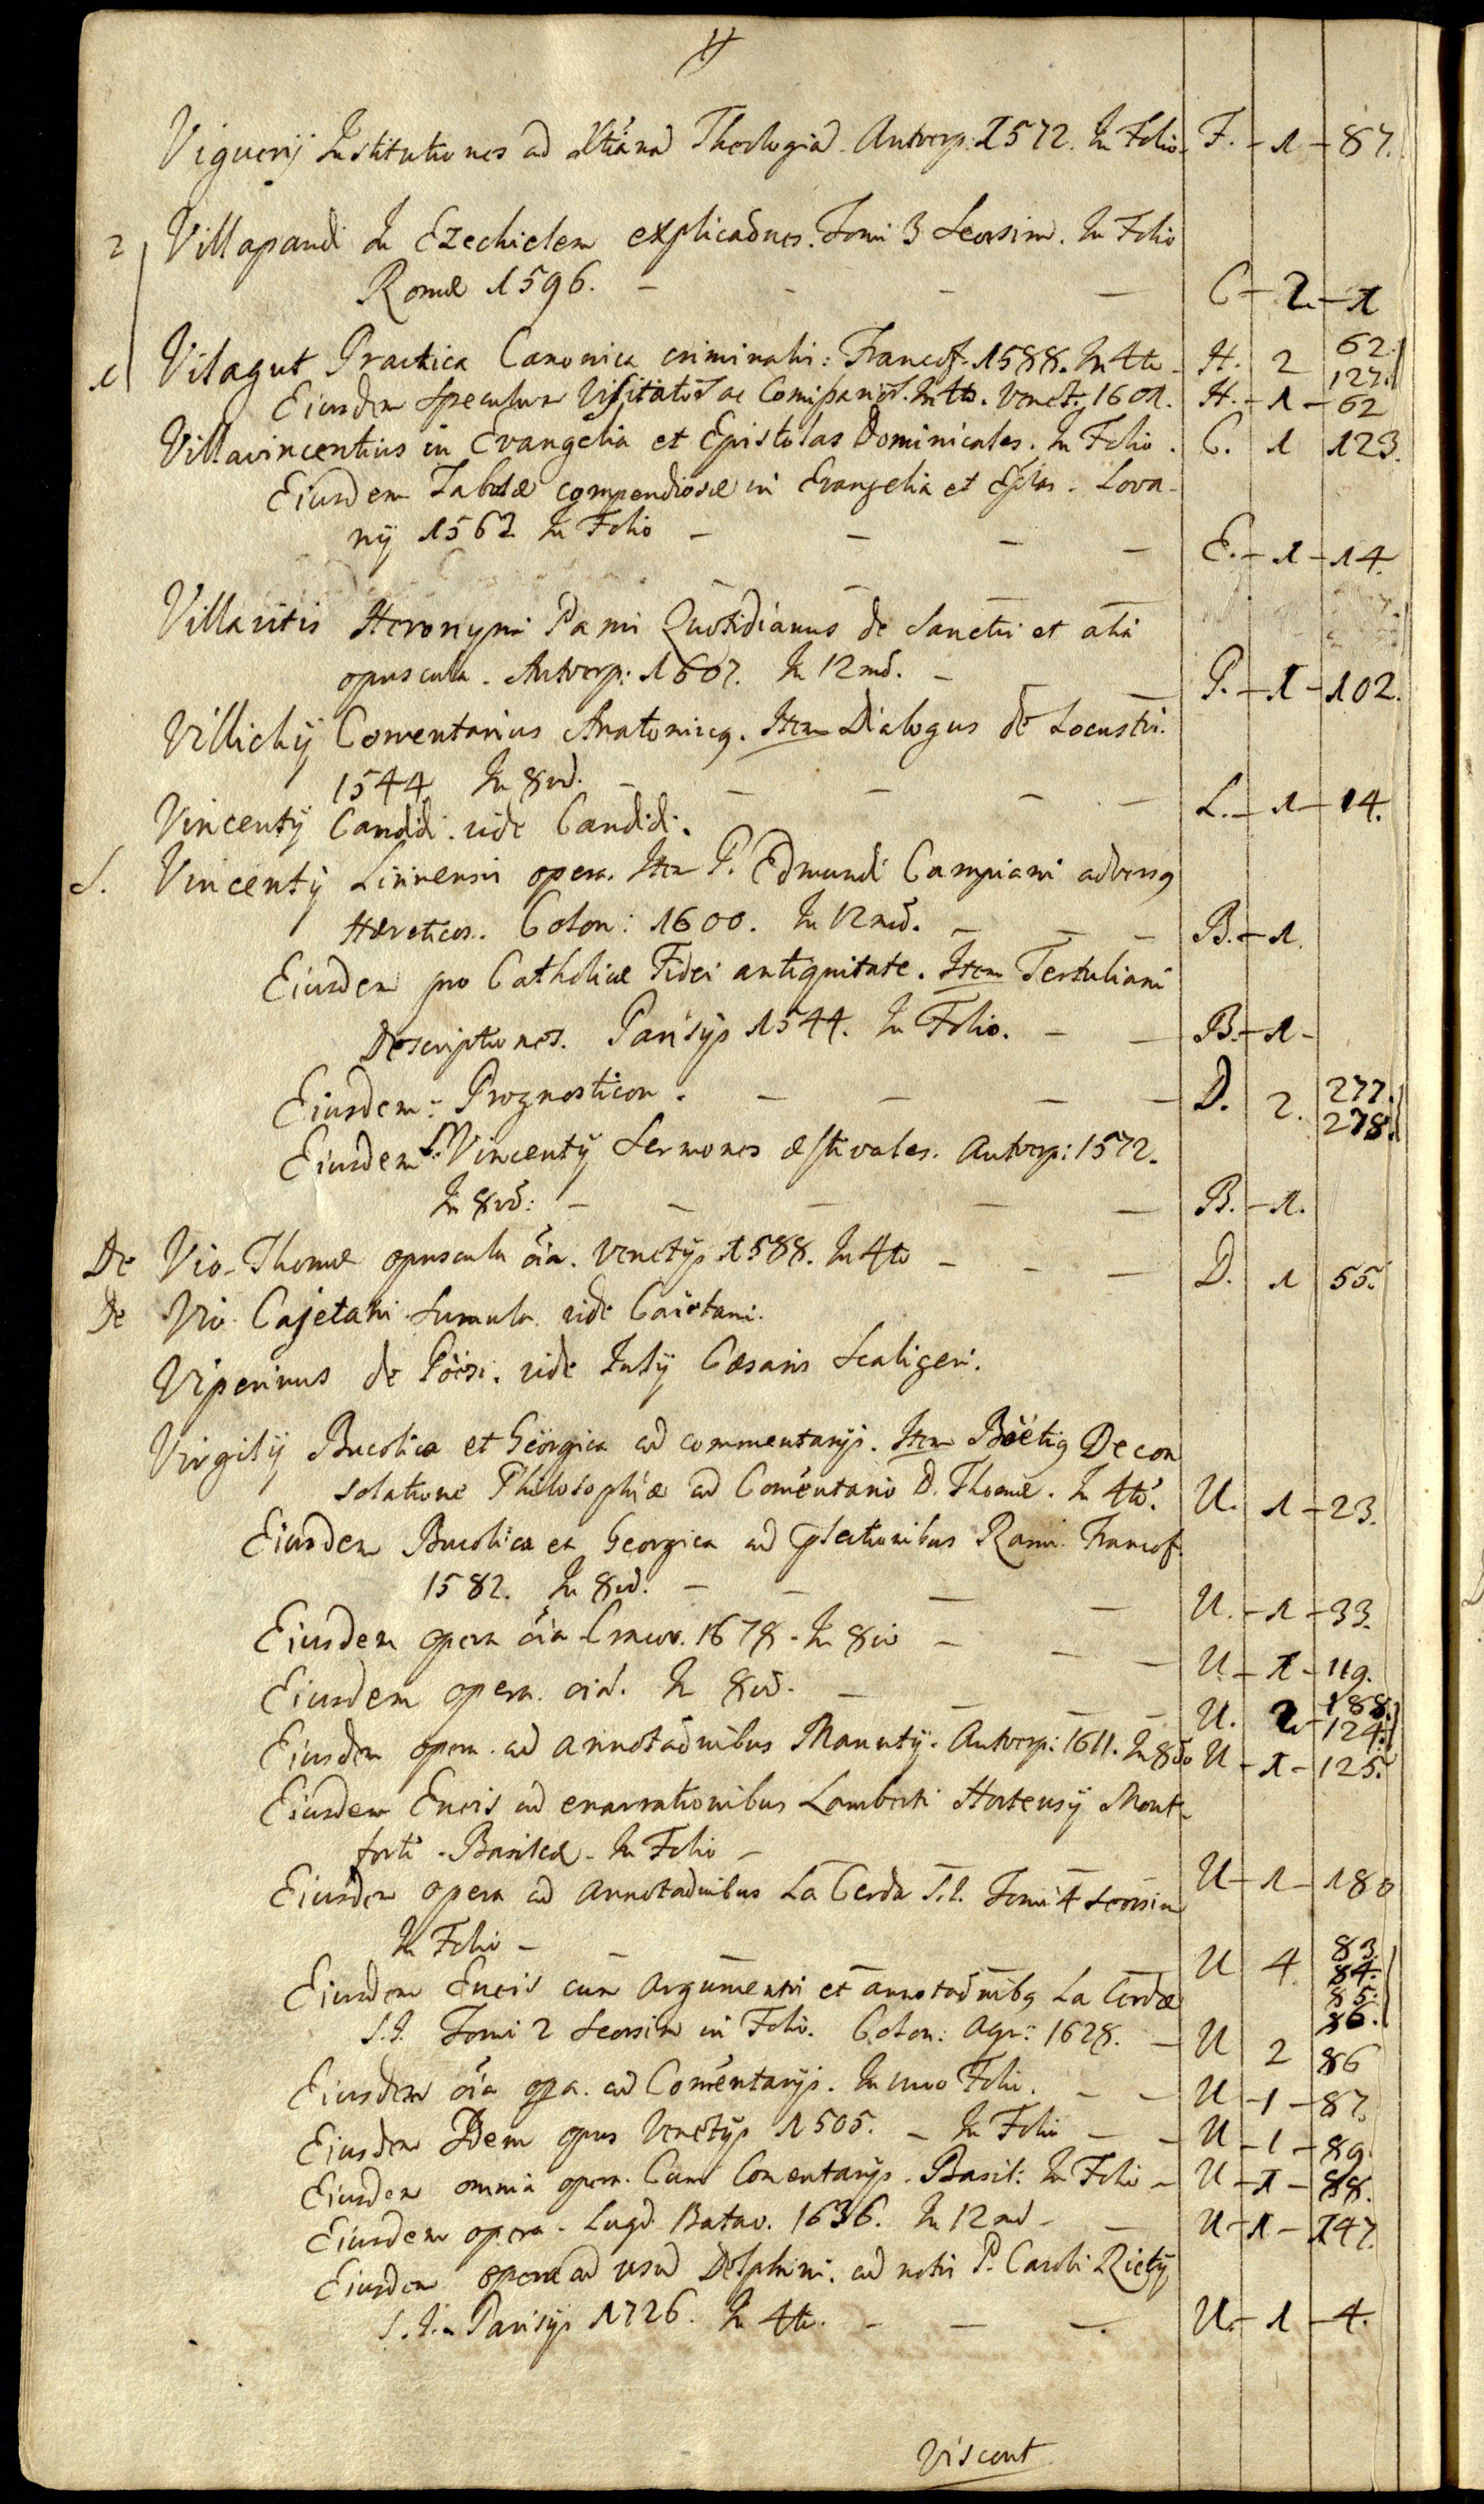 Viguerij Institutiones ad Xtianā Theologiā. Antverp. 1572. In Folio. F. - 1 - 87.
2 Villapandi In Ezechielem explicaōnes. Tomi 3 Seorsim. In Folio
Romæ 1596. - - - - C - 2 - 1
1 Vilagut Practica Canonica criminalis: Francof. 1588. In 4to - H. 2 62. 127.
Eiusdem Speculum Visitator̄ ac In 4to. Venet. 1601. H. - 1 - 62
Villavincentius in Evangelia et Epistolas Dominicales. In Folio. C. 1 123.
Eiusdem Tabulæ compendiosæ in Evangelia et Eplas. Lova-
nij 1562 In Folio - - - - E. - 1 - 14.
Villavitis Heronymi Panis Quotidianus de Sanctis et alia
opuscula. Antverp: 1607. In 12mō. - - - P. - 1 - 102.
Villichij Comentarius Anatomicg. Item Dialogus de Locustis.
1544 In 8vō. - - - - - L. - 1 - 14.
Vincentij Candidi. vide Candidi.
S. Vincentij Lirinensis opera. Item P. Edmundi Campiani adversg
Hæreticos. Colon: 1600. In 12mō. - - - B. - 1.
Eiusdem pro Catholicæ Fidei antiquitate. Item Tertuliani
Descriptiones. Parisijs 1544. In Folio. - - B. - 1 -
Eiusdem: Prognosticon. - - - - D. 2. 277. 278.
Eiusdem S. Vincentij Sermones æstivales. Antverp: 1572.
In 8vō: - - - - - B. - 1.
De Vio Thomæ opuscula oīa. Venetijs 1588. In 4to - - - D. 1 55.
De Vio Cajetani Sumula vide Caietani.
Viperinus de Poësi. vide Iulij Cæsaris Scaligeri.
Virgilij Bucolica et Georgica cū commentarijs. Item Boëtig De con
solatione Philosophiæ cū Comentario D. Thomæ. In 4tō. U. 1 - 23.
Eiusdem Bucolica et Georgica cū plectionibus Rami. Francof.
1582. In 8vō. - - - - U. - 1 - 33.
Eiusdem opera oīa Cracov. 1678. In 8vo - - - U - 1 - 119.
Eiusdem opera. oīa. In 8vō. - - - U. 2 - 188. 124.
Eiusdem opera. cū annotaōnibus Manutij. Antverp: 1611. In 8vo U - 1 - 125.
Eiusdem Eneis cū enarrationibus Lamberti Hortensij Mont-
forti. Basileæ. In Folio - - - - U - 1 - 180
Eiusdem opera cū annotaōnibus La Cerda S.I. Tomi 4 Seorsim
In Folio - - - - - U 4. 83. 84. 85. 86.
Eiusdem Eneis cum argumentis et annotaōnibg La Cerdæ
S.I. Tomi 2 Seorsim in Folio. Colon: Agr: 1628. - U 2 86
Eiusdem oīa opa. cū Comentarijs. In uno Folio. - - U - 1 - 87.
Eiusdem Idem opus Venetijs 1505. - In Folio - - U - 1 - 89.
Eiusdem omnia opera. Cum Comentarijs. Basil: In Folio - U - 1 - 88.
Eiusdem opera. Lugd. Batav. 1636. In 12mō - - U - 1 - 147.
Eiusdem opera ad usū Delphini. cū notis P. Caroli Ruæij
S.I. Parisijs 1726. In 4to. - - - U. - 1 - 4.
Viscont